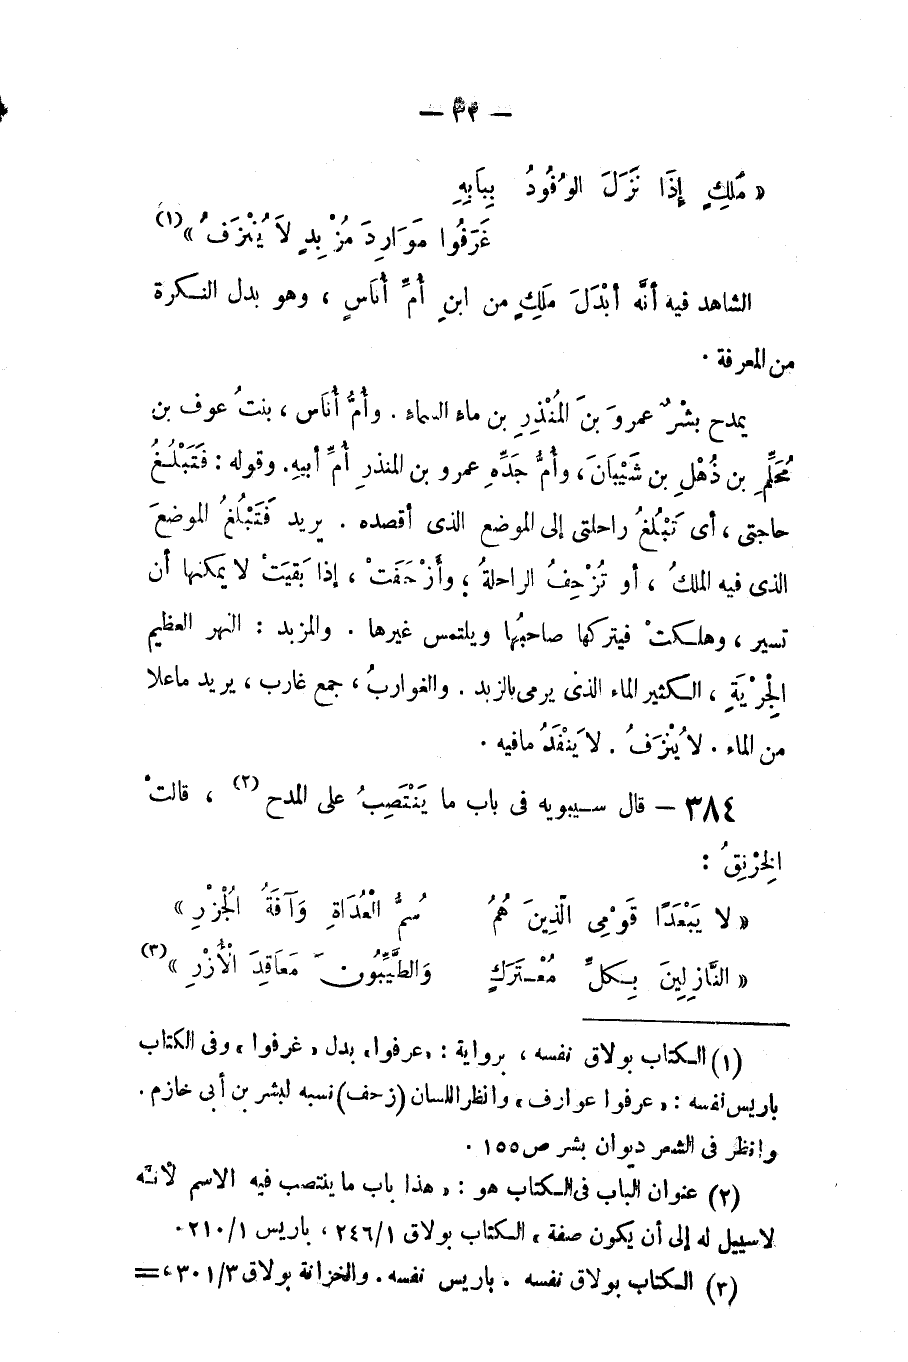 « مَلِكٍ إِذَا نَزَلَ الوُفُودُ بِبَابِهِ
غَرَفُوا مَوَارِدَ مُزْبِدٍ لاَ يُنْزَفُ » (١)
الشاهد فيه أنَّه أبْدَلَ مَلِكٍ من ابنِ أُمِّ أُنَاسٍ ، وهو بدل النكرة
من المعرفة .
يمدح بشْرٌ عمروَ بنَ المُنْذِرِ بن ماء السماء . وأمُّ أُنَاس ، بنتُ عوف بن
مُحَلِّمِ بن ذُهْلِ بن شَيْبَانَ ، وأُمُّ جَدِّهِ عمرو بن المنذرِ أُمِّ أبيهِ . وقوله : فَتَبْلُغُ
حاجتى ، أى تَبْلُغُ راحلتى إلى الموضع الذى أقصده . يريد فَتَبْلُغُ الموضعَ
الذى فيه الملكُ ، أو تُزْحِفُ الراحلةُ ؛ وأَزْحَفَتْ ، إذا بَقِيَتْ لا يمكنها أن
تسير ، وهلكتْ فيتركها صاحبُها ويلتمس غيرها . والمزبد : النهر العظيم
الجِرْيَةِ ، الكثير الماء الذى يرمى بالزبد . والغواربُ ، جمع غارب ، يريد ماعلا
من الماء . لا يُنْزَفُ . لا يَنْفَدُ مافيه .
٣٨٤ – قال سيبويه فى باب ما يَنْتَصِبُ على المدح (٢) ، قالتْ
الخِرْنِقُ :
« لا يَبْعَدًا قَوْمِى الَّذِينَ هُمُ سُمُّ الْعُدَاةِ وَآفَةُ الْجُزْرِ »
« النَّازِلِينَ بِكلِّ مُعْتَرَكٍ وَالطَّيِّبُونَ مَعَاقِدَ الْأُزْرِ » (٣)
(١) الكتاب بولاق نفسه ، برواية : «عرفوا» بدل «غرفوا» وفى الكتاب
باريس نفسه : «عرفوا عوارف» وانظر اللسان (زحف) نسبه لبشر بن أبى خازم .
وانظر فى الشعر ديوان بشر ص١٥٥ .
(٢) عنوان الباب فى الكتاب هو : «هذا باب ما ينتصب فيه الاسم لأنه
لاسبيل له إلى أن يكون صفة» الكتاب بولاق ٢٤٦/١ ، باريس ٢١٠/١ .
(٣) الكتاب بولاق نفسه . باريس نفسه . والخزانة بولاق ٣٠١/٣ ، =